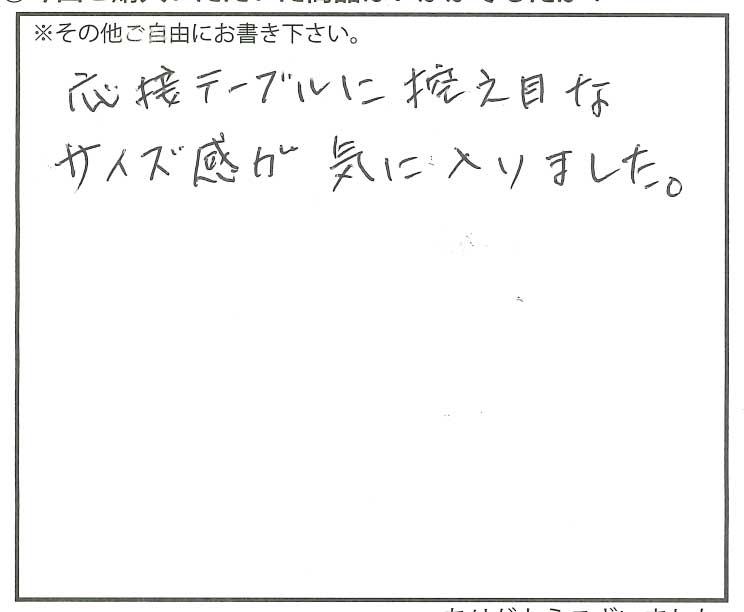 ※その他ご自由にお書き下さい。
応接テーブルに控え目な
サイズ感が気に入りました。